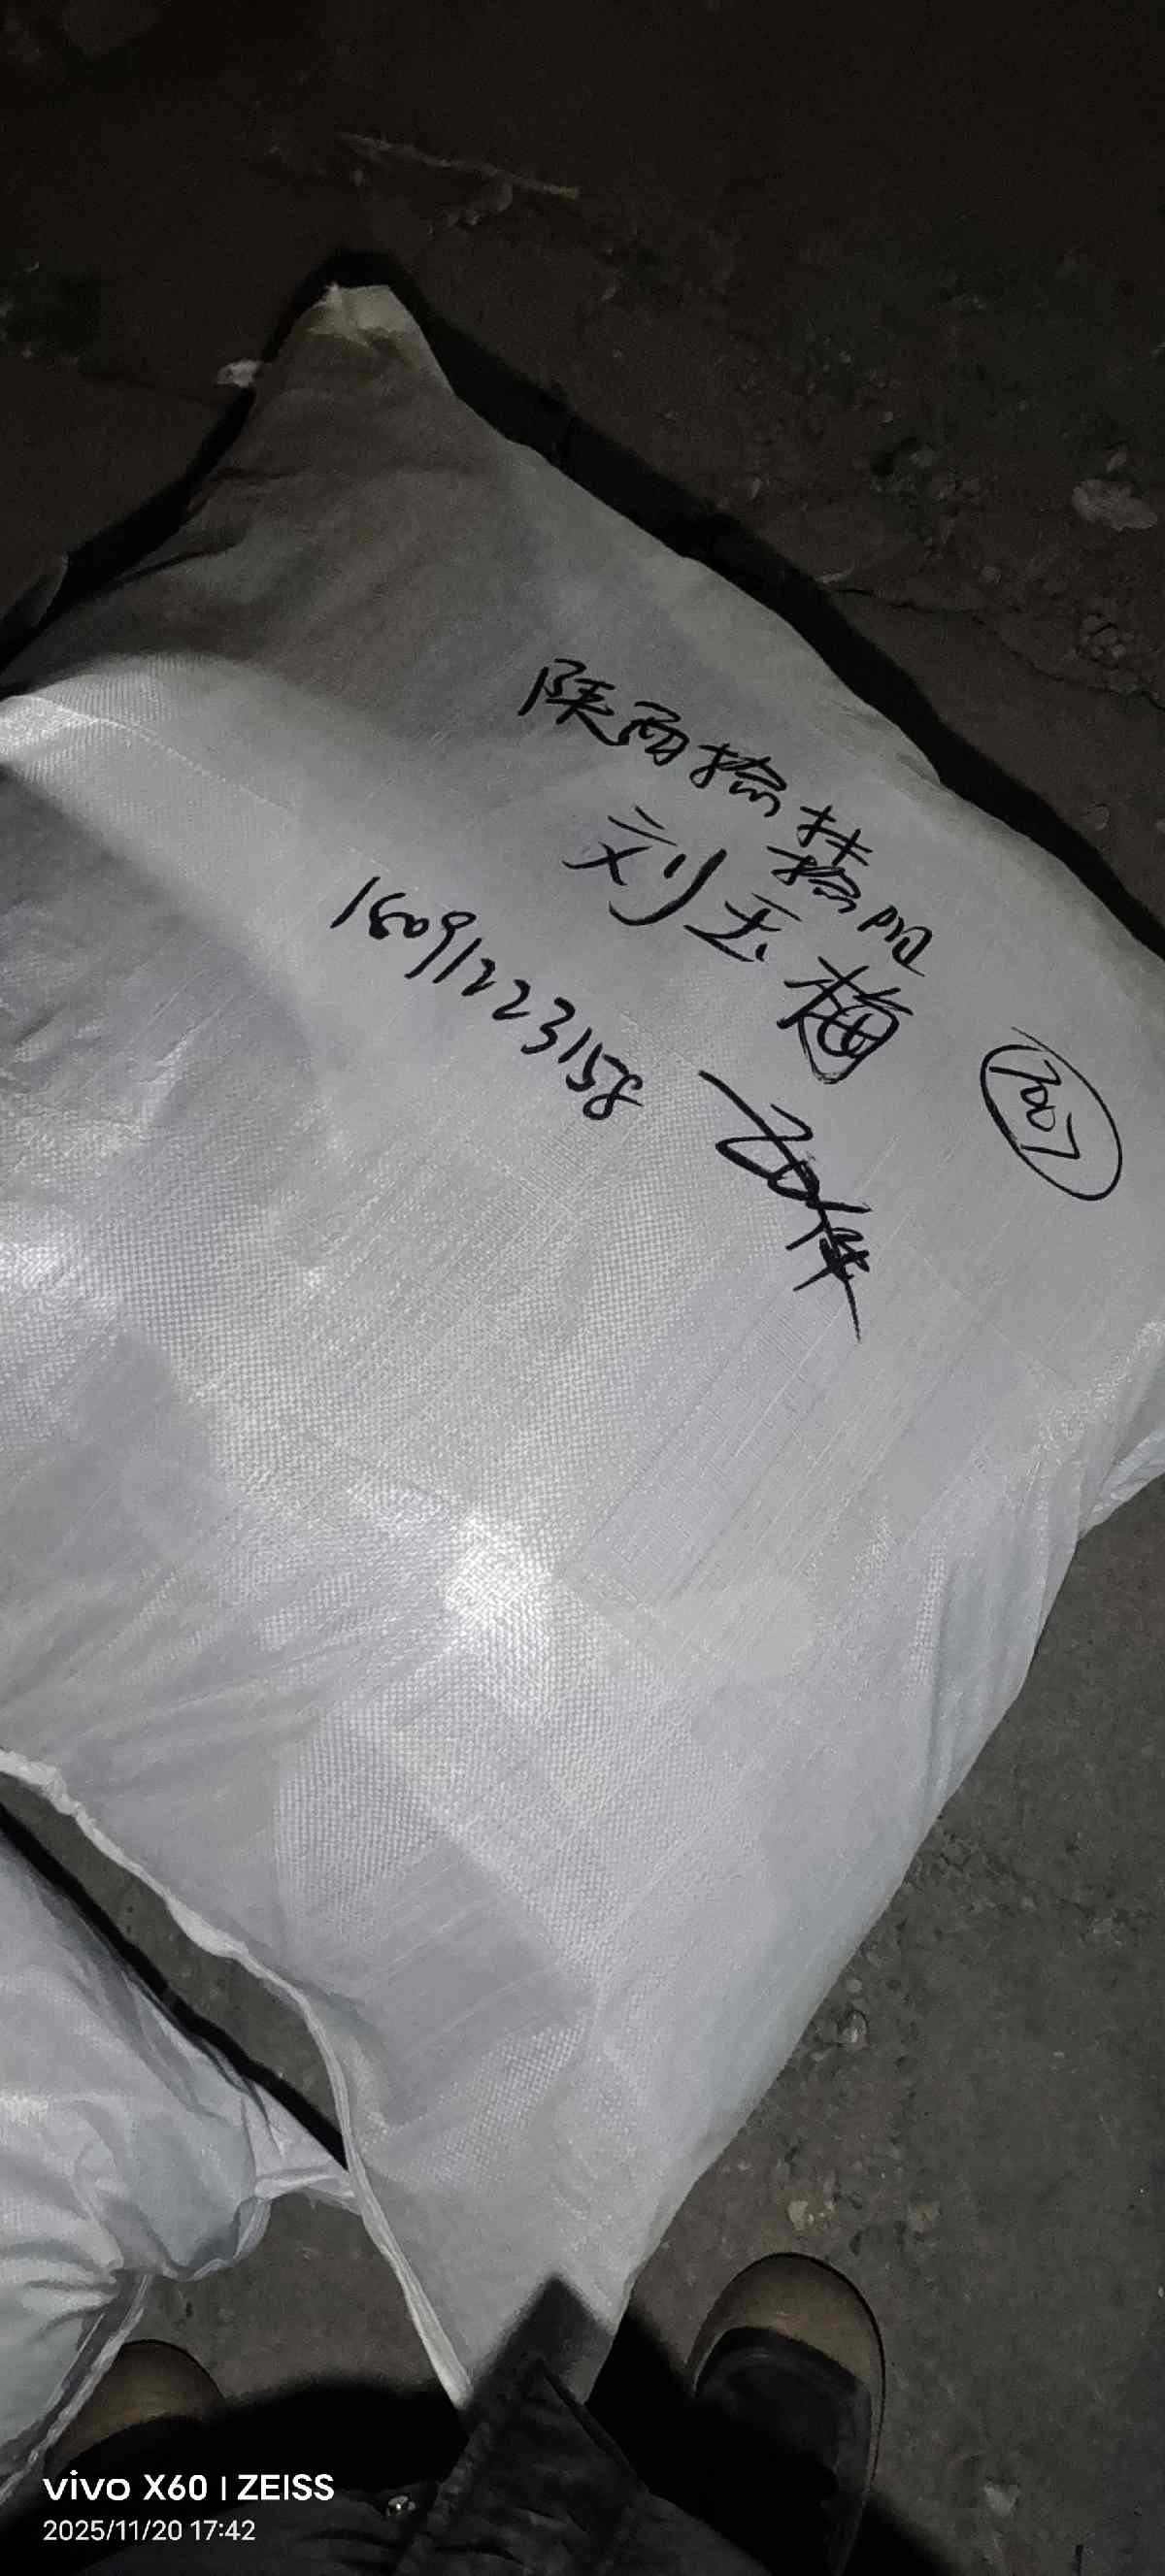 陕西榆林榆阳
刘玉梅
15091223158
7007
vivo X60 | ZEISS
2025/11/20 17:42